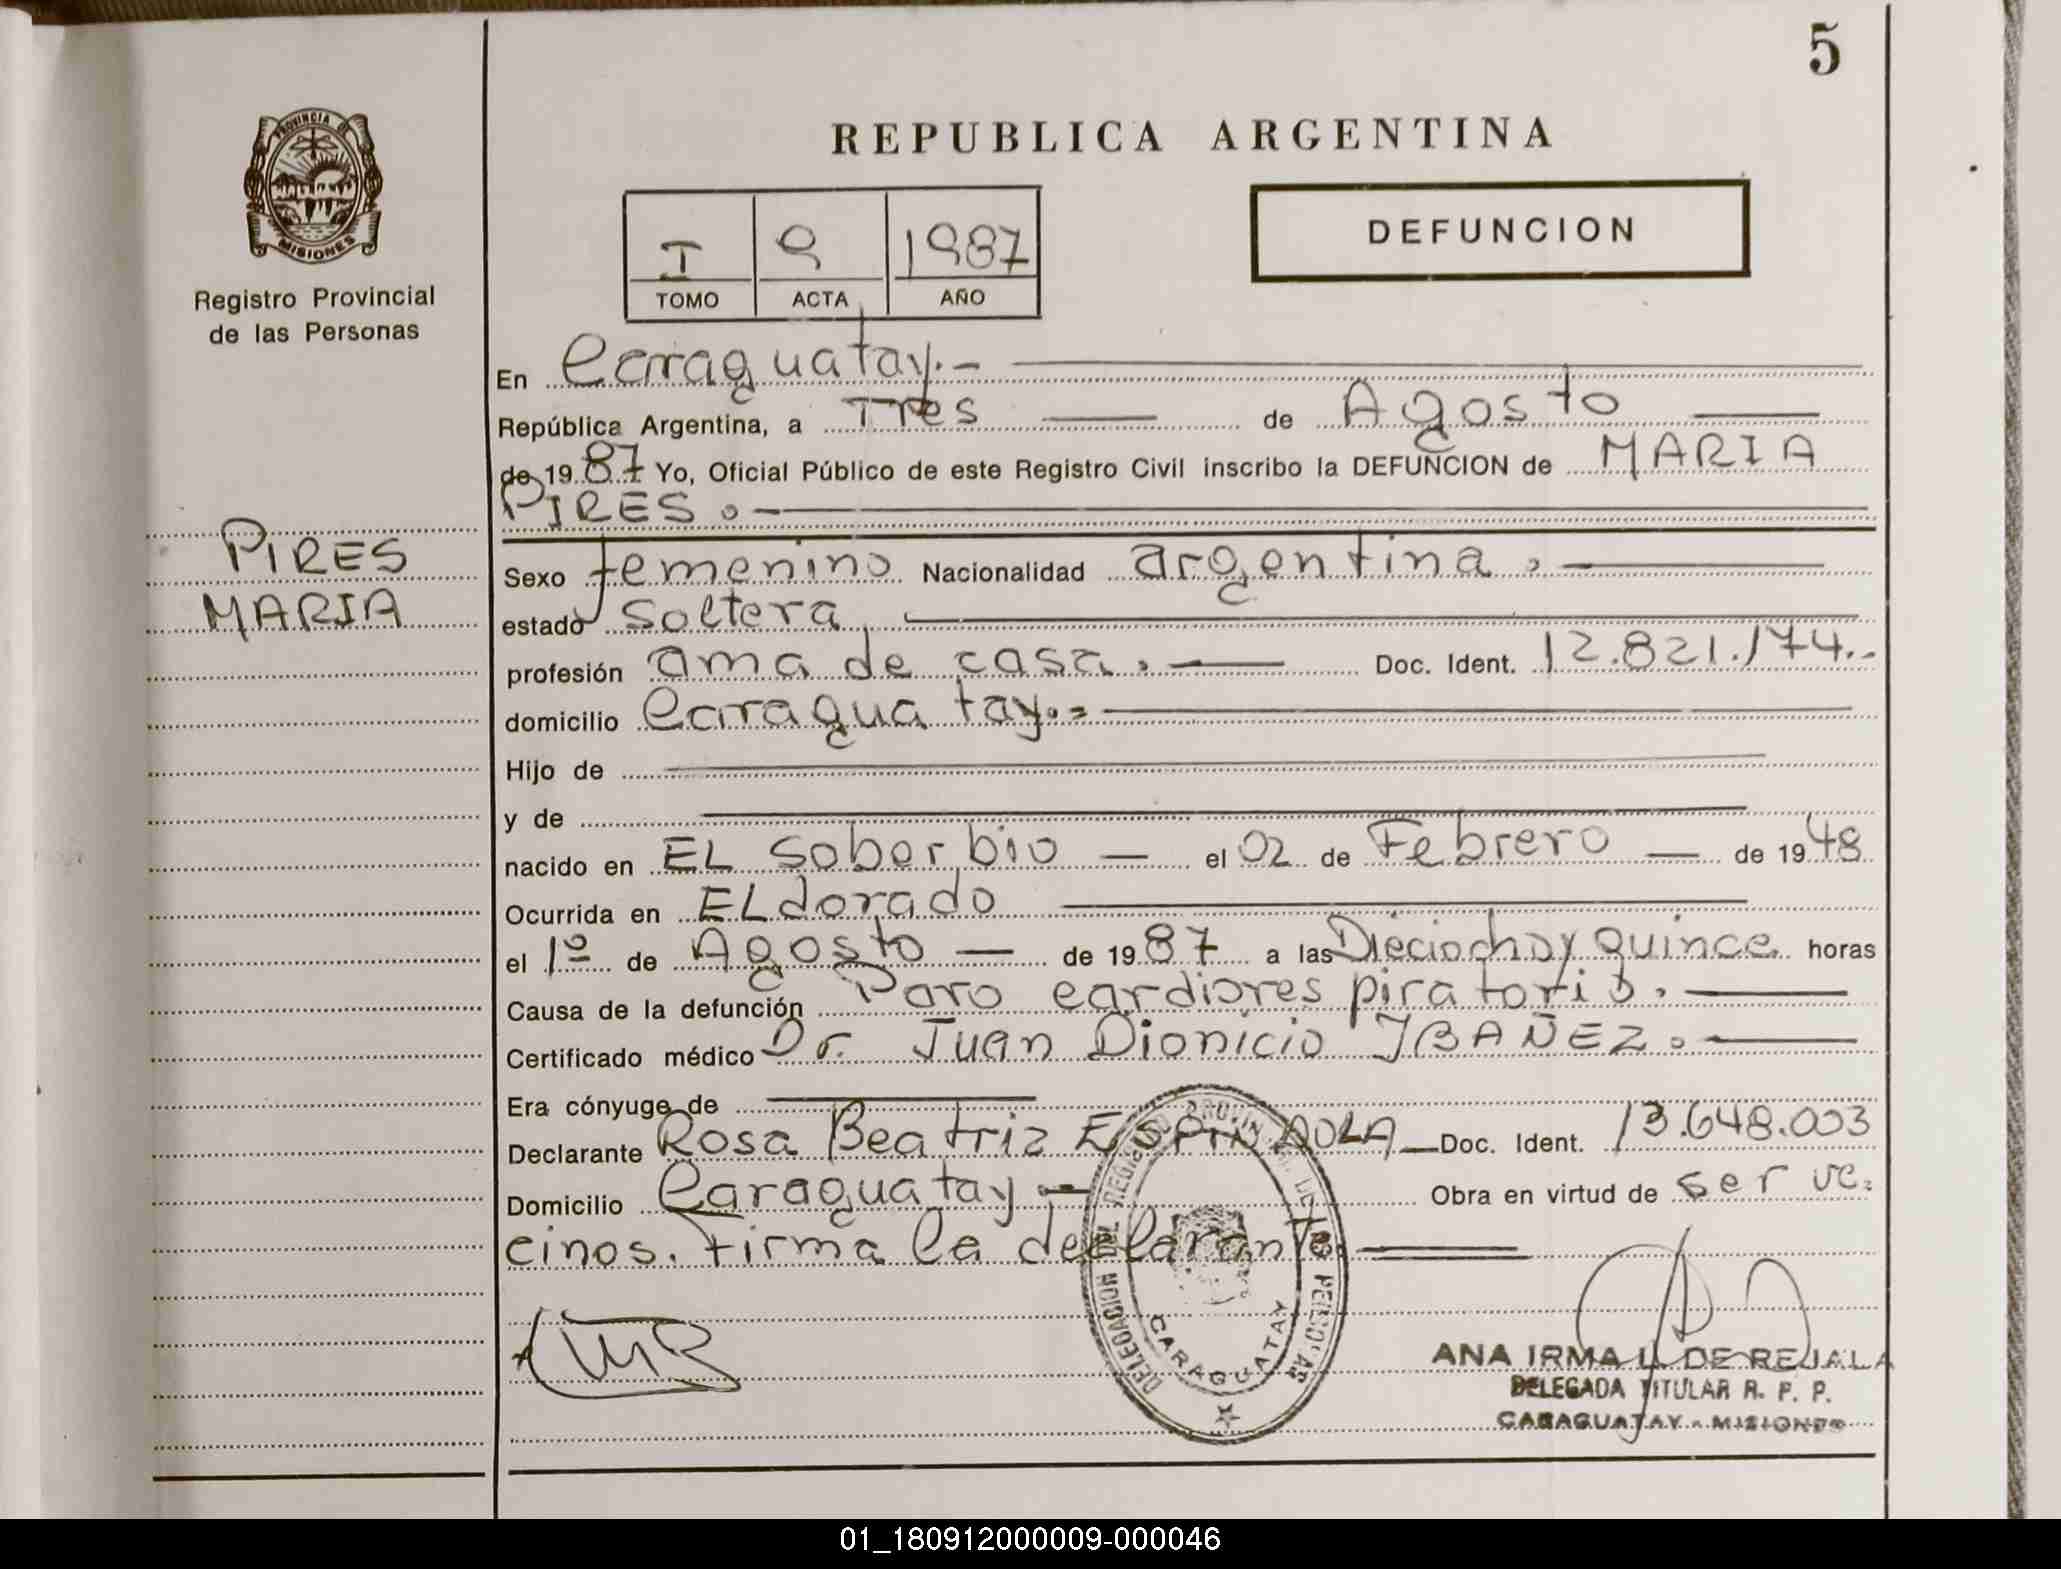 5
PROVINCIA DE
MISIONES
Registro Provincial
de las Personas
REPUBLICA ARGENTINA
I 9 1987
TOMO ACTA AÑO
DEFUNCION
En Caraguatay.-
República Argentina, a Tres de Agosto
de 19 87 Yo, Oficial Público de este Registro Civil inscribo la DEFUNCION de MARIA
PIRES.-
PIRES
MARIA
Sexo femenino Nacionalidad argentina.
estado soltera
profesión ama de casa. Doc. Ident. 12.821.174.-
domicilio Caraguatay.-
Hijo de
y de
nacido en EL Soberbio el 02 de Febrero de 19 48
Ocurrida en ELdorado
el 1º de Agosto de 19 87 a las Dieciocho y quince horas
Causa de la defunción Paro cardiorespiratorio.
Certificado médico Dr. Juan Dionicio IBAÑEZ.
Era cónyuge de
Declarante Rosa Beatriz ESPINDOLA Doc. Ident. 13.648.003
Domicilio Caraguatay.- Obra en virtud de ser ve-
cinos. Firma la declarante.
DELEGACION DEL REGISTRO PROVINCIAL DE LAS PERSONAS
CARAGUATAY
ANA IRMA L. DE REJALA
DELEGADA TITULAR R. P. P.
CARAGUATAY - MISIONES
01_180912000009-000046